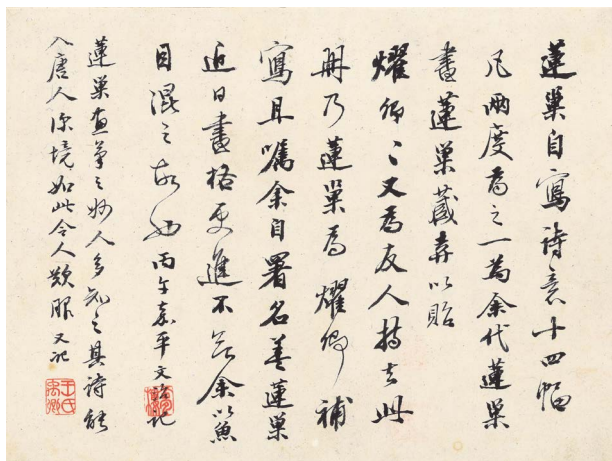 蓮巢自寫詩意十四幅
凡兩度為之一為余代蓮巢
書蓮巢藏弆以貽
燿卿〻又為友人持去此
冊乃蓮巢為燿卿補
寫且囑余自署名蓋蓮巢
近日畫格更進不欲余以魚
目混之故也丙午嘉平文治記
蓮巢畫筆之妙人多知之其詩能
入唐人深境如此令人歎服又記
王氏禹卿